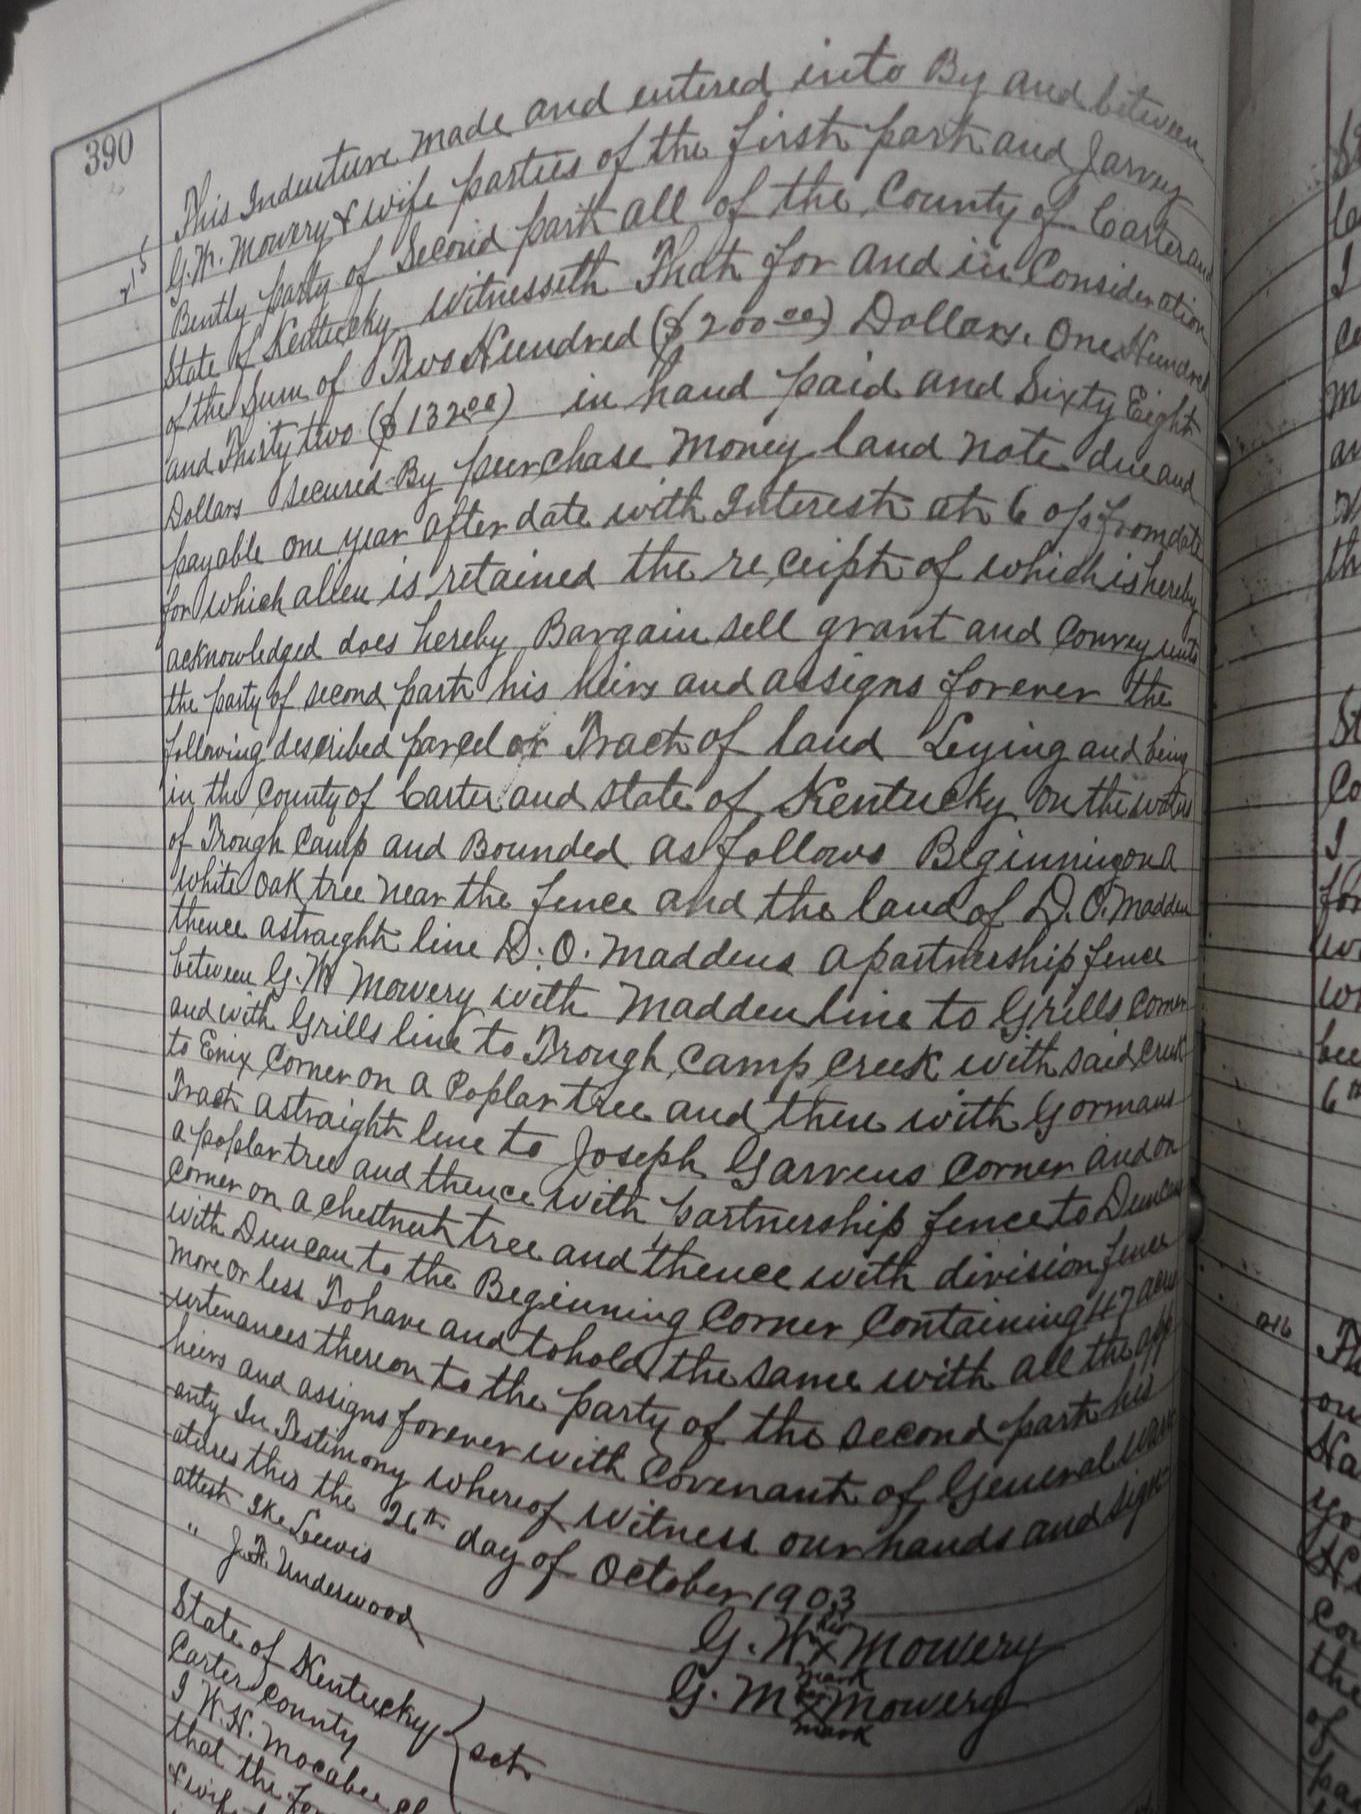 390
This Indenture made and entered into By and between
G.W. Mowery & wife parties of the first part and Jarvey
Bently party of Second part all of the County of Carter and
State of Kentucky Witnesseth That for and in Consideration
of the Sum of Two Hundred ($200.00) Dollars. One Hundred
and Thirty two ($132.00) in hand paid and Sixty Eight
Dollars Secured By purchase money land note due and
payable one year after date with Interest at 6 o/o from date
for which alien is retained the receipt of which is hereby
acknowledged does hereby Bargain sell grant and Convey unto
the party of second part his heirs and assigns forever the
following described parcel or Tract of land Leying and being
in the County of Carter and state of Kentucky on the waters
of Trough Camp and Bounded as follows Beginning on a
white oak tree near the fence and the land of D. O. Madden
thence a straight line D. O. Maddens a partnership fence
between G.W Mowery with Madden line to Grills Corner
and with Grills line to Trough Camp Creek with said Creek
to Enix Corner on a Poplar tree and then with Gormans
Tract a straight line to Joseph Garvens Corner and on
a poplar tree and thence with partnership fence to Duncan
Corner on a chestnut tree and thence with division fence
with Duncan to the Beginning Corner Containing 47 acres
more or less To have and to hold the same with all the app
urtenances thereon to the party of the second part his
heirs and assigns forever with Covenant of General warr
anty In Testimony whereof witness our hands and sign-
atures this the 26th day of October 1903
attest Ike Lewis
" J.F. Underwood
G. W. his x mark Mowery
G. M x mark Mowery
State of Kentucky
Carter County } sct.
I W.H. Mocabee
that the
& wife